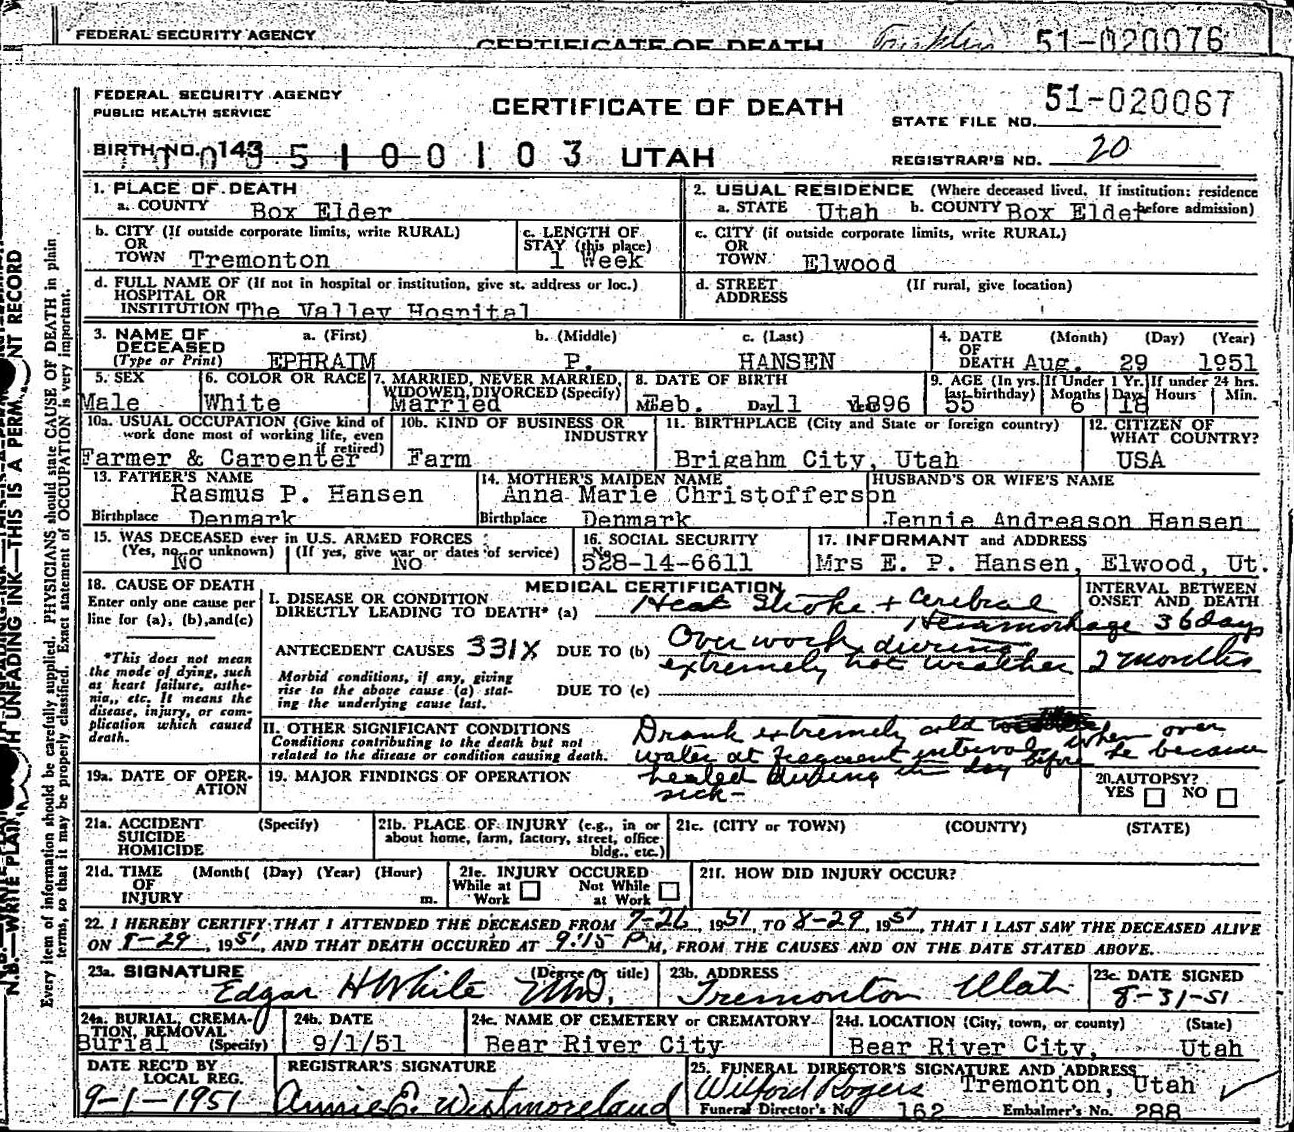 FEDERAL SECURITY AGENCY CERTIFICATE OF DEATH Franklin 51-020076
FEDERAL SECURITY AGENCY
PUBLIC HEALTH SERVICE
CERTIFICATE OF DEATH
51-020067
STATE FILE NO.
BIRTH NO. 143 5100103 UTAH
REGISTRAR'S NO. 20
1. PLACE OF DEATH
a. COUNTY Box Elder
2. USUAL RESIDENCE (Where deceased lived. If institution: residence before admission)
a. STATE Utah b. COUNTY Box Elder
b. CITY (If outside corporate limits, write RURAL)
OR
TOWN Tremonton
c. LENGTH OF
STAY (this place)
1 Week
c. CITY (if outside corporate limits, write RURAL)
OR
TOWN Elwood
d. FULL NAME OF (If not in hospital or institution, give st. address or loc.)
HOSPITAL OR
INSTITUTION The Valley Hospital
d. STREET (If rural, give location)
ADDRESS
3. NAME OF
DECEASED
(Type or Print)
a. (First) b. (Middle) c. (Last)
EPHRAIM P. HANSEN
4. DATE (Month) (Day) (Year)
OF
DEATH Aug. 29 1951
5. SEX
Male
6. COLOR OR RACE
White
7. MARRIED, NEVER MARRIED,
WIDOWED, DIVORCED (Specify)
Married
8. DATE OF BIRTH
Mo. Feb. Day 11 Year 1896
9. AGE (In yrs. last birthday) 55
If Under 1 Yr. Months 6 Days 18
If under 24 hrs. Hours Min.
10a. USUAL OCCUPATION (Give kind of
work done most of working life, even
if retired)
Farmer & Carpenter
10b. KIND OF BUSINESS OR
INDUSTRY
Farm
11. BIRTHPLACE (City and State or foreign country)
Brigahm City, Utah
12. CITIZEN OF
WHAT COUNTRY?
USA
13. FATHER'S NAME
Rasmus P. Hansen
Birthplace Denmark
14. MOTHER'S MAIDEN NAME
Anna Marie Christofferson
Birthplace Denmark
HUSBAND'S OR WIFE'S NAME
Jennie Andreason Hansen
15. WAS DECEASED ever in U.S. ARMED FORCES
(Yes, no, or unknown) (If yes, give war or dates of service)
No No
16. SOCIAL SECURITY
No.
528-14-6611
17. INFORMANT and ADDRESS
Mrs E. P. Hansen, Elwood, Ut.
18. CAUSE OF DEATH
Enter only one cause per
line for (a), (b), and (c)
*This does not mean
the mode of dying, such
as heart failure, asthe-
nia,, etc. It means the
disease, injury, or com-
plication which caused
death.
MEDICAL CERTIFICATION
INTERVAL BETWEEN
ONSET AND DEATH
I. DISEASE OR CONDITION
DIRECTLY LEADING TO DEATH* (a) Heat Stroke + Cerebral
Hemorrhage 36 days
ANTECEDENT CAUSES 331X DUE TO (b) Over work during
extremely hot weather 2 months
Morbid conditions, if any, giving
rise to the above cause (a) stat-
ing the underlying cause last.
DUE TO (c)
II. OTHER SIGNIFICANT CONDITIONS
Conditions contributing to the death but not
related to the disease or condition causing death.
Drank extremely cold
water at frequent intervals when over
heated during the day before he became
sick-
19a. DATE OF OPER-
ATION
19. MAJOR FINDINGS OF OPERATION
20. AUTOPSY?
YES NO
21a. ACCIDENT (Specify)
SUICIDE
HOMICIDE
21b. PLACE OF INJURY (e.g., in or
about home, farm, factory, street, office
bldg., etc.)
21c. (CITY or TOWN) (COUNTY) (STATE)
21d. TIME (Month( (Day) (Year) (Hour)
OF
INJURY m.
21e. INJURY OCCURED
While at Work Not While at Work
21f. HOW DID INJURY OCCUR?
22. I HEREBY CERTIFY THAT I ATTENDED THE DECEASED FROM 7-26, 1951 TO 8-29, 1951, THAT I LAST SAW THE DECEASED ALIVE
ON 8-29, 1951, AND THAT DEATH OCCURED AT 9:15 P M, FROM THE CAUSES AND ON THE DATE STATED ABOVE.
23a. SIGNATURE (Degree or title)
Edgar H White M.D.
23b. ADDRESS
Tremonton Utah
23c DATE SIGNED
8-31-51
24a. BURIAL, CREMA-
TION, REMOVAL
(Specify)
Burial
24b. DATE
9/1/51
24c. NAME OF CEMETERY or CREMATORY
Bear River City
24d. LOCATION (City, town, or county) (State)
Bear River City, Utah
DATE REC'D BY
LOCAL REG.
9-1-1951
REGISTRAR'S SIGNATURE
Annie E. Westmoreland
25. FUNERAL DIRECTOR'S SIGNATURE AND ADDRESS
Wilford Rogers Tremonton, Utah
Funeral Director's No 162 Embalmer's No. 288
N.B.—WRITE PLAINLY WITH UNFADING INK—THIS IS A PERMANENT RECORD
Every item of information should be carefully supplied. PHYSICIANS should state CAUSE OF DEATH in plain
terms, so that it may be properly classified. Exact statement of OCCUPATION is very important.